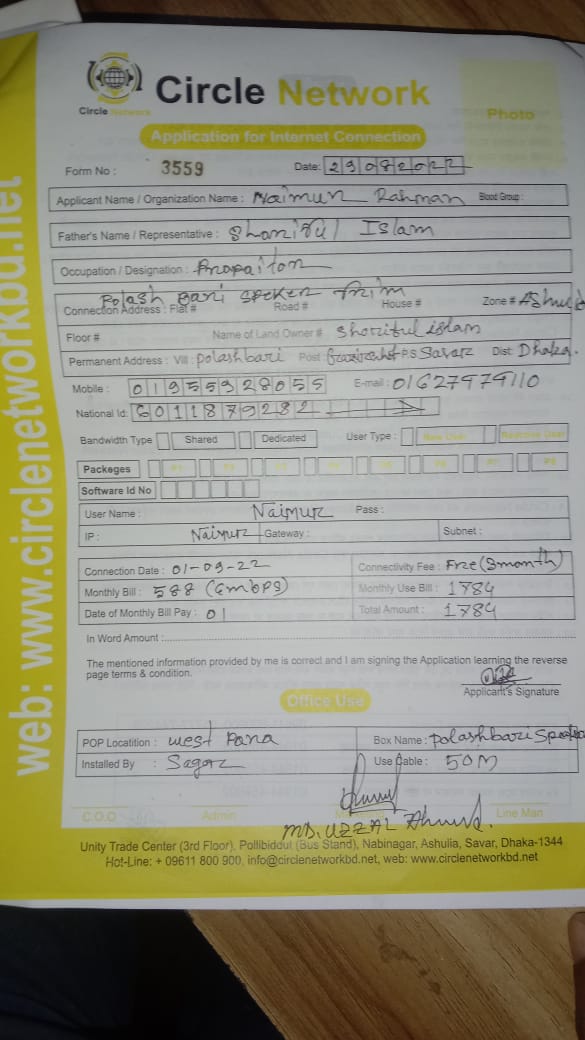 Circle Network
Circle Network
Photo
Application for Internet Connection
Form No : 3559 Date: 29082022
Applicant Name / Organization Name : Naimur Rahman Blood Group :
Father's Name / Representative : Shariful Islam
Occupation / Designation :
Polash Bari
Connection Address : Flat # Road # House # Zone #
Floor # Name of Land Owner # Shoriful islam
Permanent Address : Vill : polashbari Post : P.S Savar Dist: Dhaka.
Mobile : 01955928055 E-mail : 01627979110
National Id: 6011879282
Bandwidth Type Shared Dedicated User Type : New User
Packeges
Software Id No
User Name : Naimur Pass :
IP : Naimur Gateway : Subnet :
Connection Date : 01-09-22 Connectivity Fee : Fre (3month)
Monthly Bill : 588 Monthly Use Bill : 1784
Date of Monthly Bill Pay : 01 Total Amount : 1784
In Word Amount :
The mentioned information provided by me is correct and I am signing the Application learning the reverse
page terms & condition.
Applicant's Signature
Office Use
POP Locatition : west Para Box Name : polashbari
Installed By : Sagar Use Cable : 50M
C.O.O Admin Line Man
MD. UZZAL Ahmed.
Unity Trade Center (3rd Floor), Pollibiddut (Bus Stand), Nabinagar, Ashulia, Savar, Dhaka-1344
Hot-Line: + 09611 800 900, info@circlenetworkbd.net, web: www.circlenetworkbd.net
web: www.circlenetworkbd.net